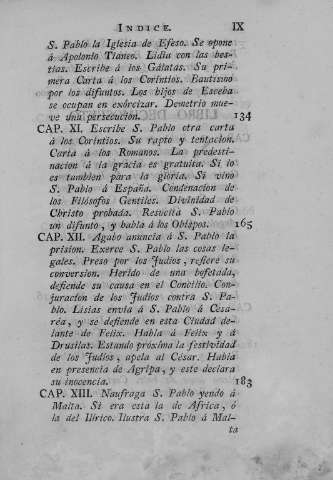 INDICE. IX
S. Pablo la Iglesia de Efeso. Se opone
á Apolonio Tianeo. Lidia con las bes-
tias. Escribe á los Gálatas. Su pri-
mera Carta á los Corintios. Bautismo
por los difuntos. Los hijos de Esceba
se ocupan en exórcizar. Demetrio mue-
ve una persecucion. 134
CAP. XI. Escribe S. Pablo otra carta
á los Corintios. Su rapto y tentacion.
Carta á los Romanos. La predesti-
nacion á la gracia es gratuita. Si lo
es tambien para la gloria. Si vino
S. Pablo á España. Condenacion de
los Filósofos Gentiles. Divinidad de
Christo probada. Resucita S. Pablo
un difunto, y habla á los Obispos. 165
CAP. XII. Agabo anuncia á S. Pablo la
prision. Exerce S. Pablo las cosas le-
gales. Preso por los Judios, refiere su
conversion. Herido de una bofetada,
defiende su causa en el Concilio. Con-
juracion de los Judios contra S. Pa-
blo. Lisias envia á S. Pablo á Cesa-
réa, y se defiende en esta Ciudad de-
lante de Felix. Habla á Felix y á
Drusilas. Estando próxîma la festividad
de los Judios, apela al César. Habla
en presencia de Agripa, y este declara
su inocencia. 183
CAP. XIII. Naufraga S. Pablo yendo á
Malta. Si era esta la de Africa, ó
la del Ilírico. Ilustra S. Pablo á Mal-
ta